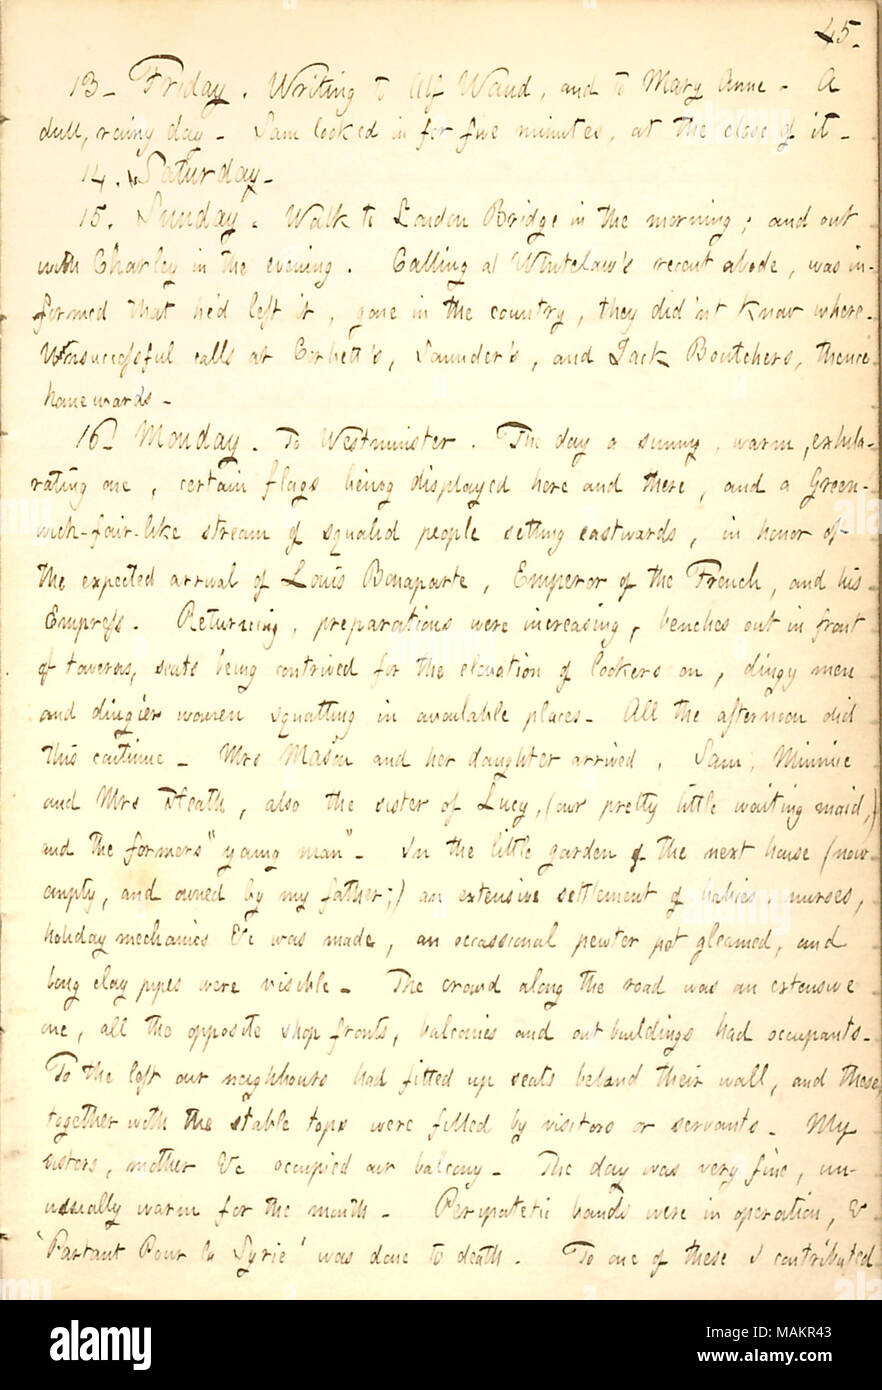 45.
13_ Friday. Writing to Alf Waud, and to Mary Anne. A
dull, rainy day_ Sam looked in for five minutes, at the close of it_
14. Saturday_
15. Sunday. Walk to London Bridge in the morning; and out
with Charley in the evening. Calling at Whitelaw's recent abode, was in-
formed that he'd left it, gone in the country, they did'nt know where.
Unsuccessful calls at Corbett's, Saunder's, and Jack Boutchers, thence
homewards_
16_ Monday. To Westminster. The day a sunny, warm, exhila-
rating one, certain flags being displayed here and there, and a Green-
wich-fair-like stream of squalid people setting eastwards, in honor of
the expected arrival of Louis Bonaparte, Emperor of the French, and his
Empress. Returning, preparations were increasing, benches out in front
of taverns, seats being contrived for the elevation of lookers on, dingy men
and dingier women squatting in available places_ All the afternoon did
this continue_ Mrs Mason and her daughter arrived, Sam, Minnie
and Mrs Heath, also the sister of Lucy, (our pretty little waiting maid,)
and the formers "young man"_ In the little garden of the next house (now
empty, and owned by my father;) an extensive settlement of babies, nurses,
holiday mechanics &c was made, an occassional pewter pot gleamed, and
long clay pipes were visible_ The crowd along the road was an extensive
one, all the opposite shop fronts, balconies and outbuildings had occupants_
To the left our neighbours had fitted up seats behind their wall, and these,
together with the stable tops were filled by visitors or servants_ My
sisters, mother &c occupied our balcony_ The day was very fine, un-
usually warm for the month_ Peripatetic bands were in operation, &
'Partant Pour la Syrie' was done to death. To one of these I contributed
alamy
alamy
Image ID: MAKR43
www.alamy.com